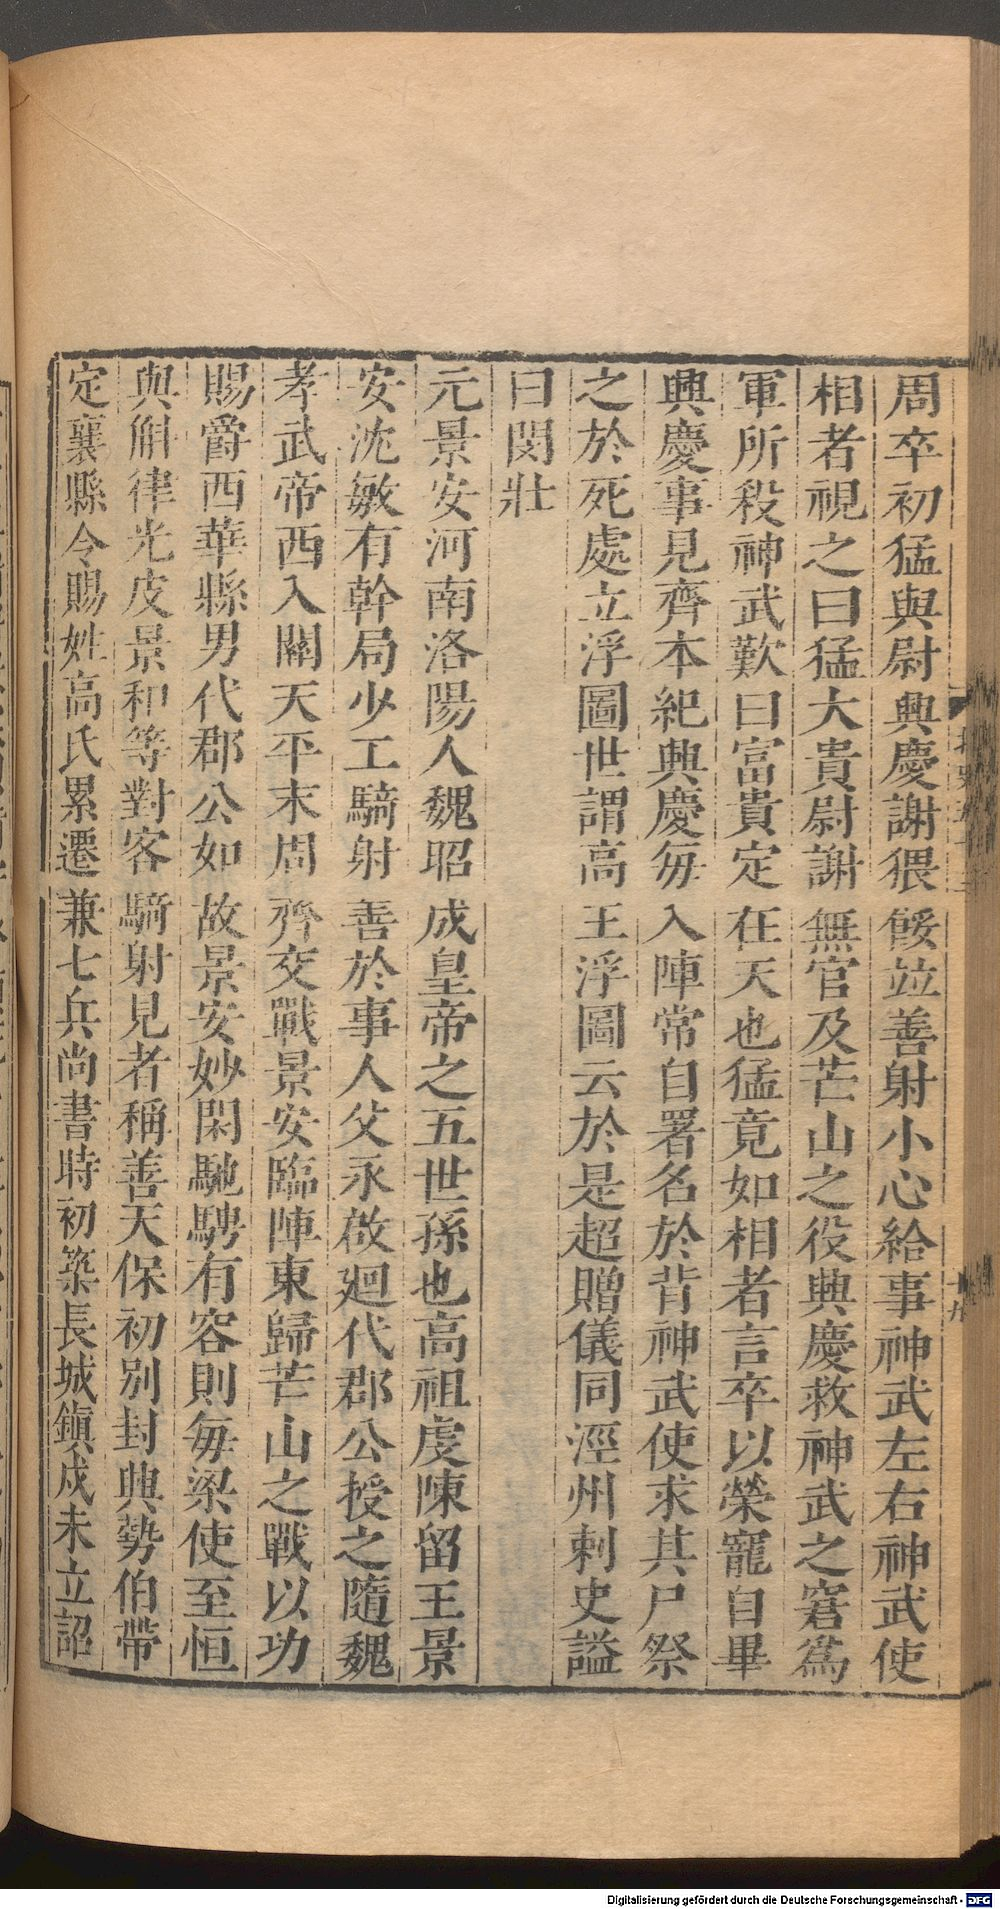 周卒初猛與尉興慶謝猥餒竝善射小心給事神武左右神武使
相者視之曰猛大貴尉謝無官及芒山之役興慶救神武之窘爲
軍所殺神武歎曰富貴定在天也猛竟如相者言卒以榮寵自畢
興慶事見齊本紀興慶每入陣常自署名於背神武使求其尸祭
之於死處立浮圖世謂高王浮圖云於是超贈儀同涇州刺史謚
曰閔壯
元景安河南洛陽人魏昭成皇帝之五世孫也高祖虔陳留王景
安沈敏有幹局少工騎射善於事人父永啟廻代郡公授之隨魏
孝武帝西入關天平末周齊交戰景安臨陣東歸芒山之戰以功
賜爵西華縣男代郡公如故景安妙閑馳騁有容則每梁使至恒
與斛律光皮景和等對客騎射見者稱善天保初別封興勢伯帶
定襄縣令賜姓高氏累遷兼七兵尚書時初築長城鎮戍未立詔
十九
Digitalisierung gefördert durch die Deutsche Forschungsgemeinschaft - DFG